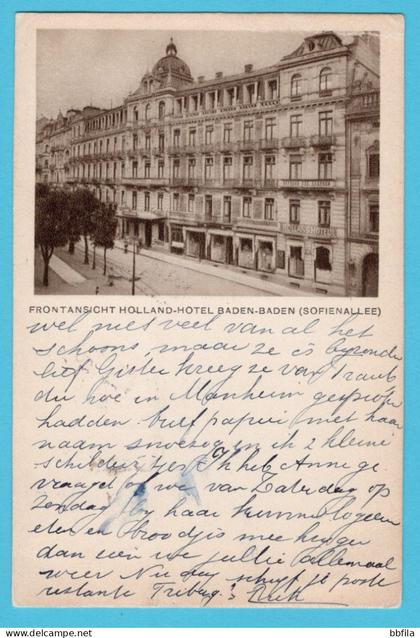 HOLLAND HOTEL
FRONTANSICHT HOLLAND-HOTEL BADEN-BADEN (SOFIENALLEE)
wel niet veel van al het
schoons, maar ze is byzonder
lief Gister kreeg ze van Traub
die hoe in Manheim gesproken
hadden brief papier met haar
naam en ik 2 kleine
schilderijtjes Ik heb Annie ge
vraagd of we van Zaterdag op
Zondag by haar kunnen logeeren
eten en broodjes mee
dan zien we jullie allemaal
weer Nu dag schryf je poste
restante
https://www.delcampe.net
bbfila